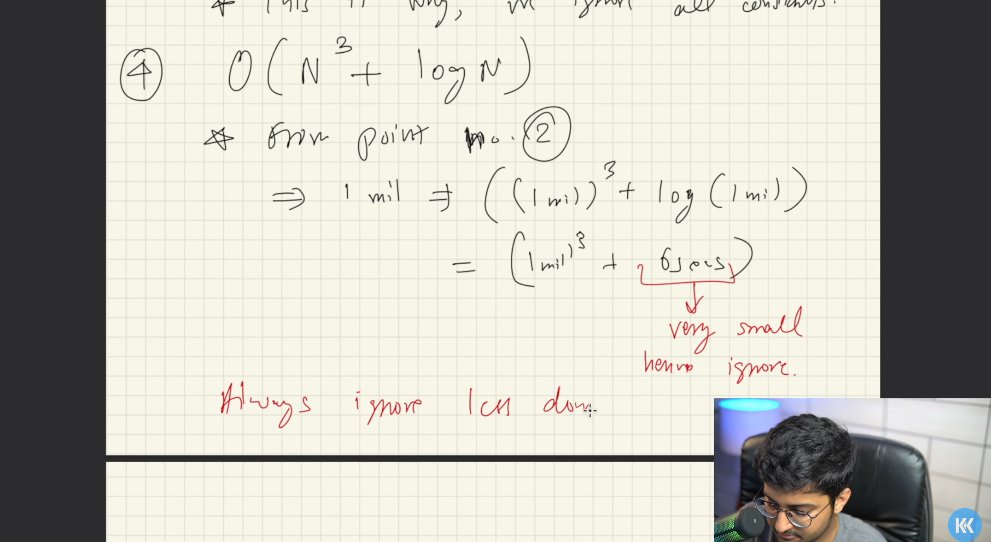 * This is why, we ignore all constants.
④ O(N³ + log N)
* From point no. ②
⇒ 1 mil ⇒ ((1mil)³ + log(1mil))
= (1mil)³ + 6secs)
very small
hence ignore.
Always ignore less dom
KK